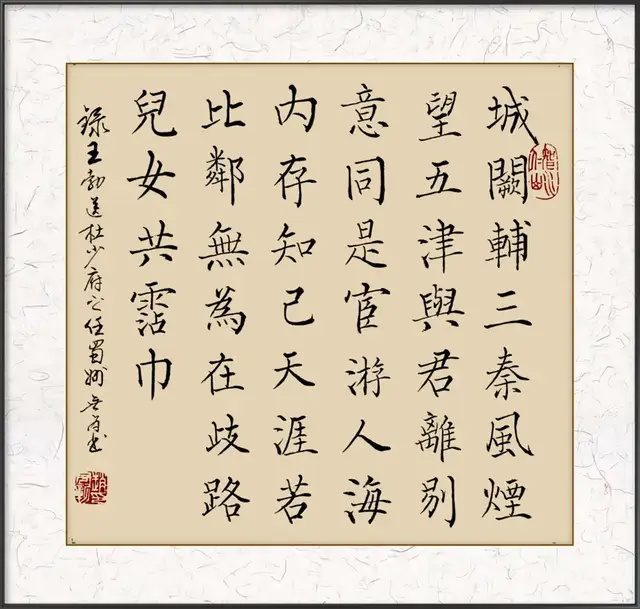 城闕輔三秦風煙
望五津與君離別
意同是宦游人海
内存知己天涯若
比鄰無為在歧路
兒女共霑巾
録王勃送杜少府之任蜀州